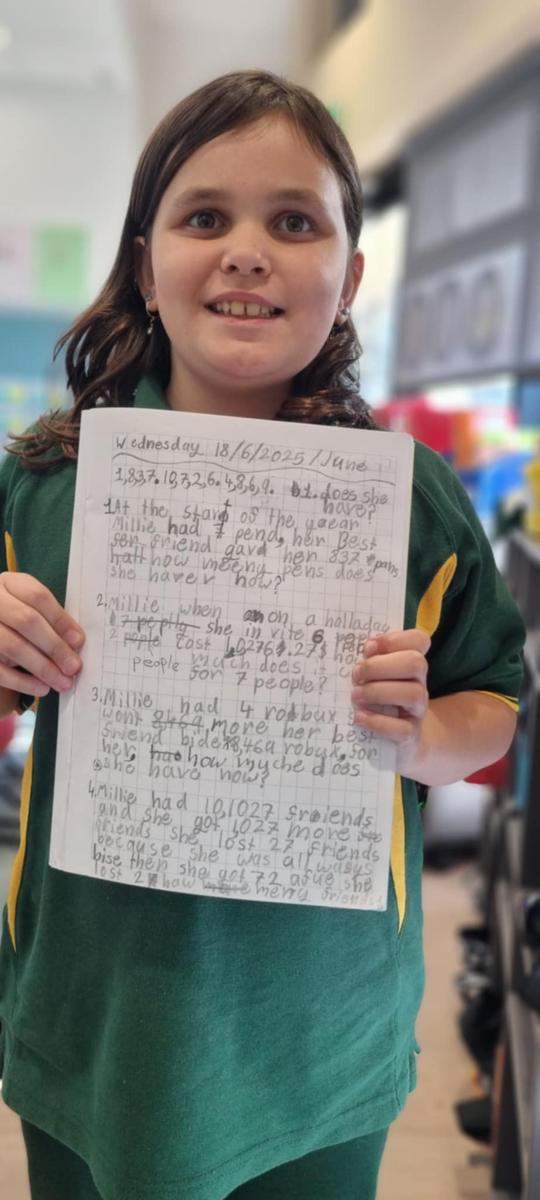 Wednesday 18/6/2025/June
1,837. 10,7,2,6. 4,8,6,9. 1. does she
have?
1. At the start of the yaear
Millie had 7 pend, her Best
friend gave her 837 pens
how meeny pens does
she have how?
2. Millie when on a holladay
she in vite 6 peopl
2 cost 10276$.27$
people much does it
for 7 people?
3. Millie had 4 robbux
wont more her best
friend bide 8,469 robux, for
her, how myche does
she have now?
4. Millie had 10,1027 froiends
and she got 1027 more
friends she lost 27 friends
because she was all wasys
bise then she got 72 ague she
lost 2 haw merry friends